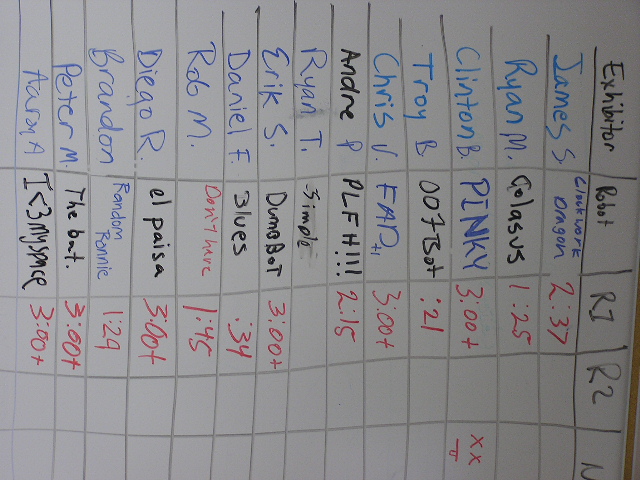 Exhibitor Robot R1 R2
James S. Clockwork Dragon 2:37
Ryan M. Golasus 1:25
Clinton B. PINKY 3:00+ XX
Troy B 007Bot :21
Chris V. FAP 3:00+
Andre P PLFH!!! 2:15
Ryan T. Simple
Erik S. DumbBoT 3:00+
Daniel F. Blues :34
Rob M. Don't have 1:45
Diego R. el paisa 3:00+
Brandon Random Ronnie 1:29
Peter M. The bat. 3:00+
Aaron A I<3 Myspace 3:00+